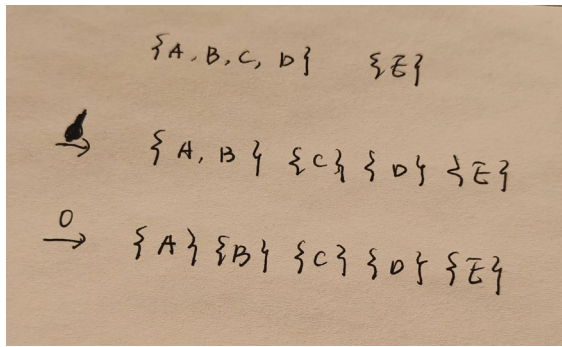 {A, B, C, D} {E}
→ {A, B} {C} {D} {E}
0 → {A} {B} {C} {D} {E}